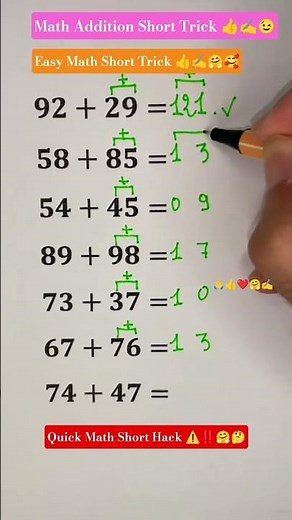 Math Addition Short Trick 👍✍️😉
Easy Math Short Trick 👍✍️🤗🥰
92 + 29 = 121 . ✓
58 + 85 = 1 3
54 + 45 = 0 9
89 + 98 = 1 7
73 + 37 = 1 0 🙏👍❤️🤗✍️
67 + 76 = 1 3
74 + 47 =
Quick Math Short Hack ⚠️‼️🤗🤔